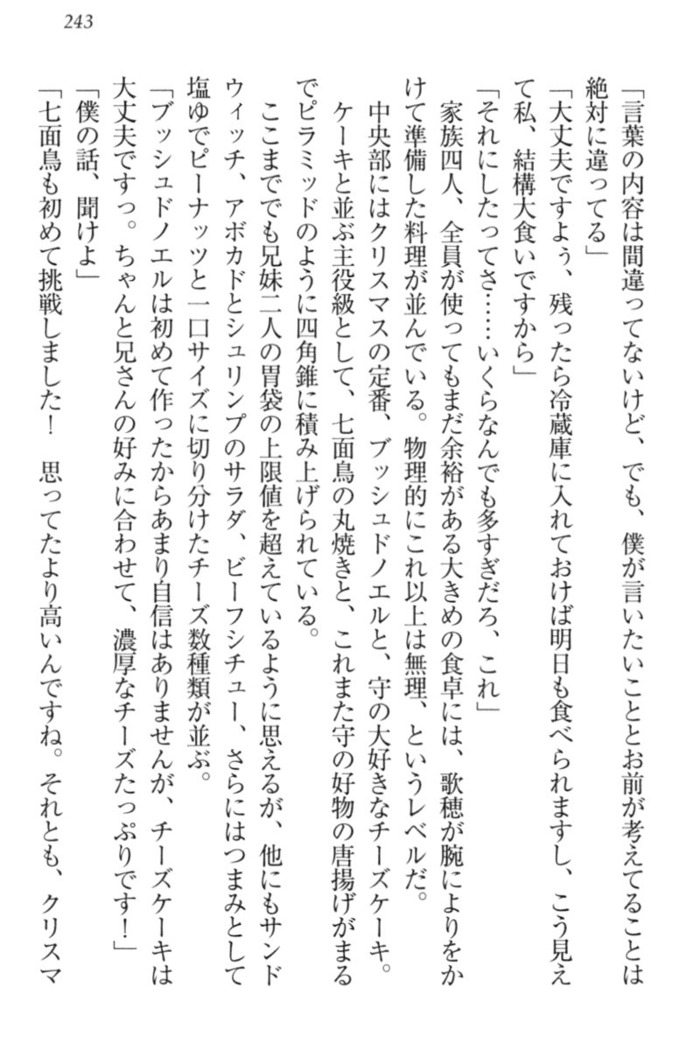 243
「言葉の内容は間違ってないけど、でも、僕が言いたいこととお前が考えてることは
絶対に違ってる」
「大丈夫ですよぅ、残ったら冷蔵庫に入れておけば明日も食べられますし、こう見え
て私、結構大食いですから」
「それにしたってさ……いくらなんでも多すぎだろ、これ」
家族四人、全員が使ってもまだ余裕がある大きめの食卓には、歌穂が腕によりをか
けて準備した料理が並んでいる。物理的にこれ以上は無理、というレベルだ。
中央部にはクリスマスの定番、ブッシュドノエルと、守の大好きなチーズケーキ。
ケーキと並ぶ主役級として、七面鳥の丸焼きと、これまた守の好物の唐揚げがまる
でピラミッドのように四角錐に積み上げられている。
ここまででも兄妹二人の胃袋の上限値を超えているように思えるが、他にもサンド
ウィッチ、アボカドとシュリンプのサラダ、ビーフシチュー、さらにはつまみとして
塩ゆでピーナッツと一口サイズに切り分けたチーズ数種類が並ぶ。
「ブッシュドノエルは初めて作ったからあまり自信はありませんが、チーズケーキは
大丈夫ですっ。ちゃんと兄さんの好みに合わせて、濃厚なチーズたっぷりです！」
「僕の話、聞けよ」
「七面鳥も初めて挑戦しました！　思ってたより高いんですね。それとも、クリスマ